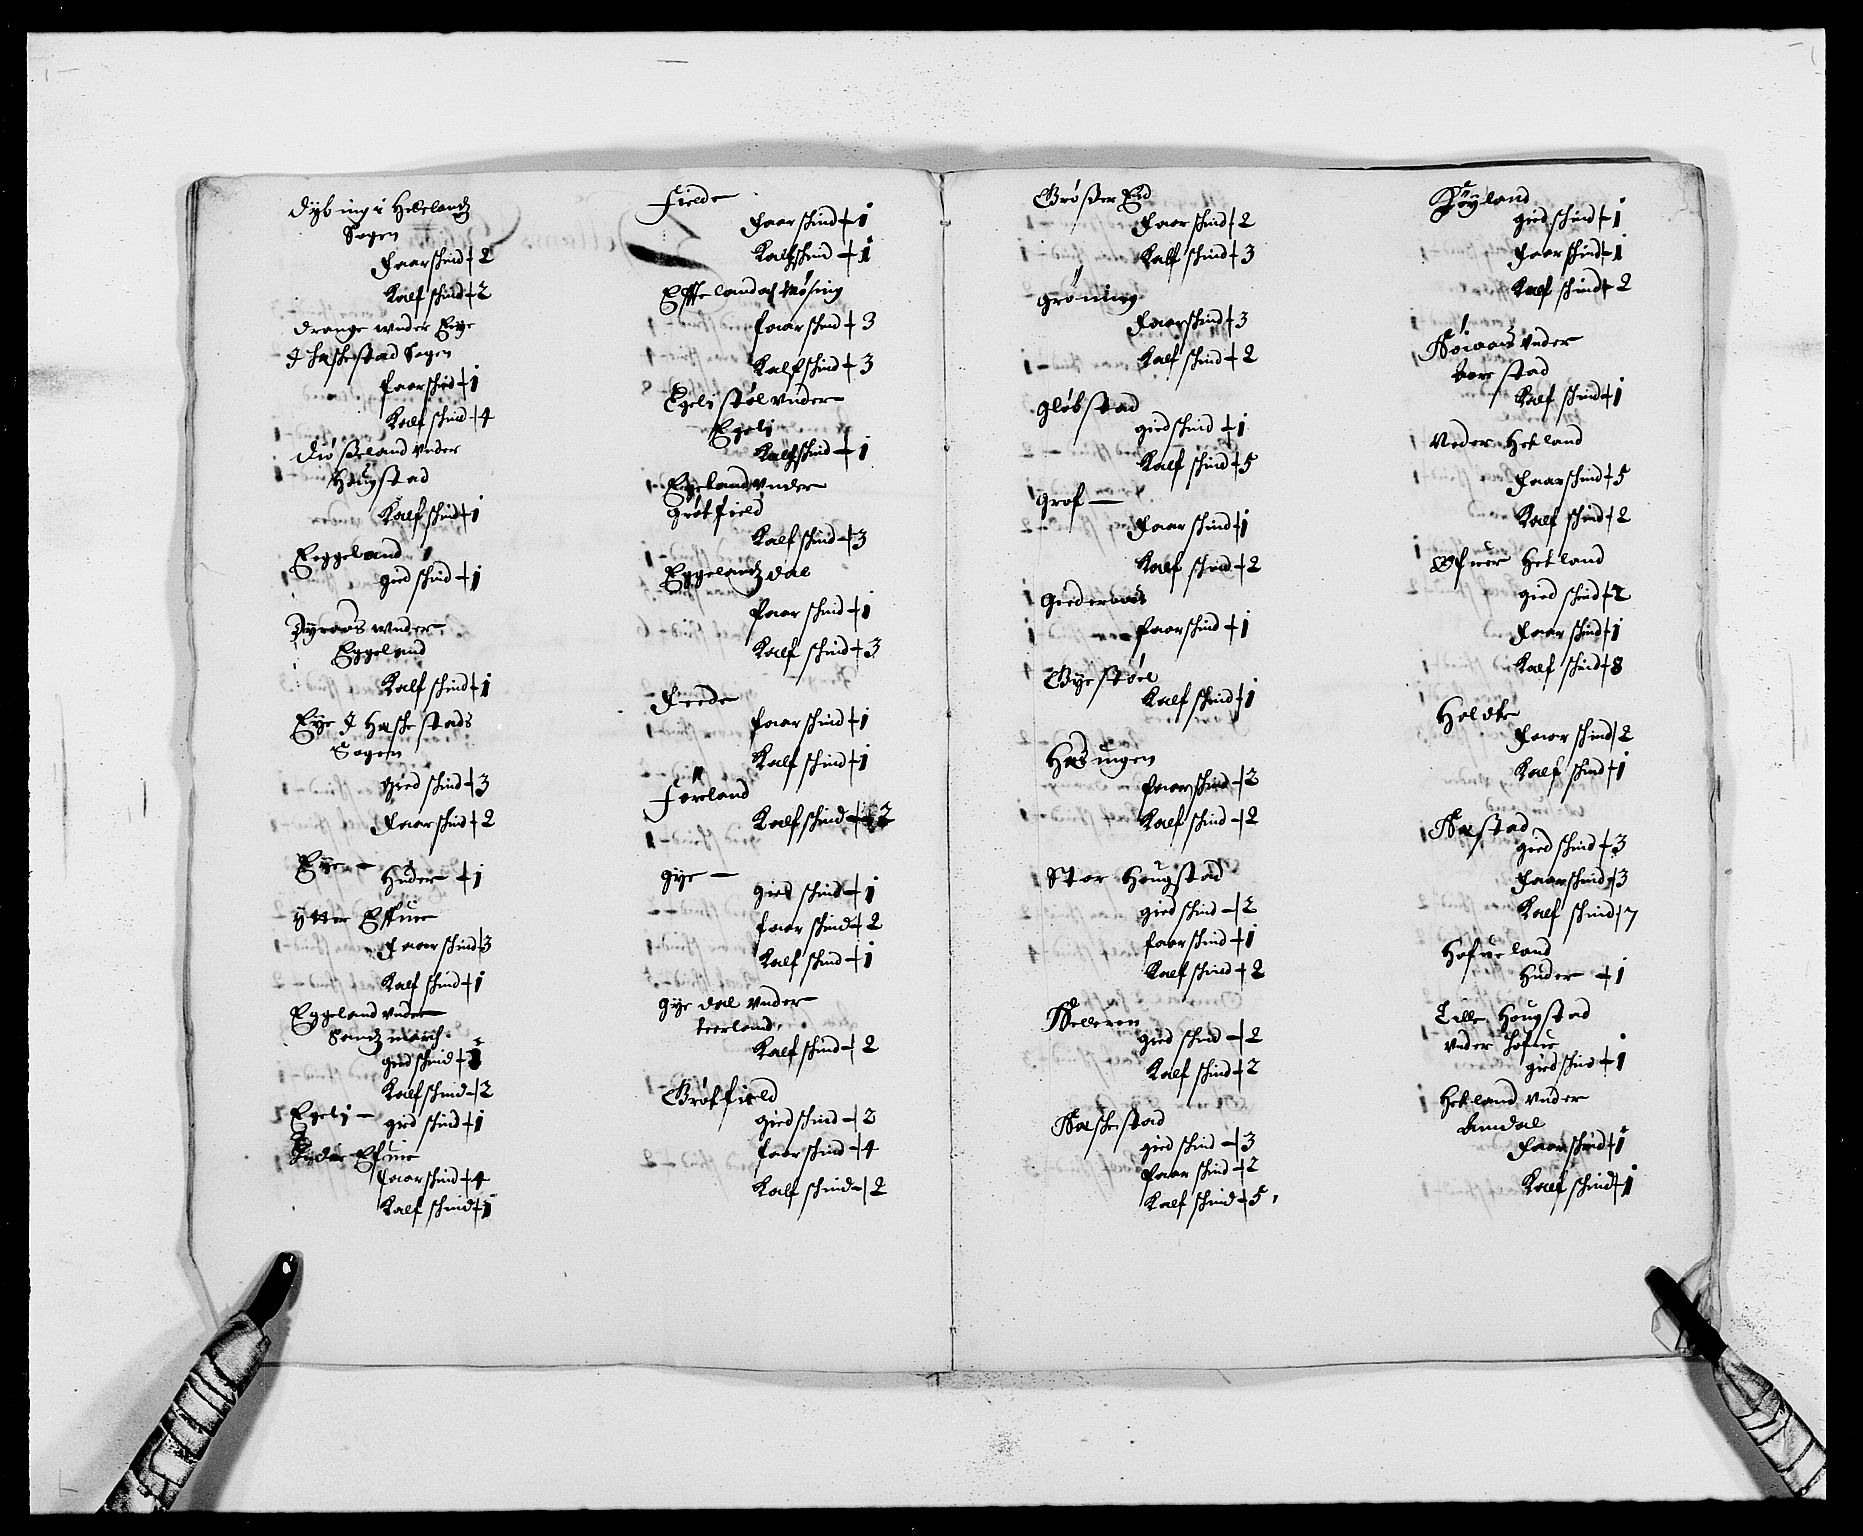 Dybing i Helelandz
Sogen
Faarschind - 2
Kalfschind - 2
Drange under Eige
J Haskestad Sogen
faarschind - 1
Kalf schind - 4
Diøsseland under
Hougstad
Kalf schind - 1
Eeggeland
gied schind - 1
Dyraas under
Eggeland
Kalf schind - 1
Eÿe J Haske stads
Sogen
gied schind - 3
Faarschind - 2
Eÿe -
Huder - 1
ÿtter Effue
Faarschind 3
Kalf schind - 1
Eggeland under
Sandz march
gied schind -
Kalfschind - 2
Egelj - gied schind - 1
Efue
faarschind - 4
Kalf schind - 1
Fielde
Faarschind - 1
Kalfschind - 1
Effteland och Møsing
faarschind - 3
Kalfschind - 3
Egeli støl under
Egelj
Kalfschind - 1
Egeland under
Grøtfield
Kalf schind - 3
Eggelandz dal
Faar schind - 1
Kalf schind - 3
Feede
faarschind - 1
Kalf schind - 1
Føreland
Kalf schind - 2
gÿe -
gied schind - 1
faar schind - 2
Kalf schind - 1
gÿe dal under
leerland
Kalf schind - 2
Grøtfield
gied schind - 2
faar schind - 4
Kalf schind - 2
Grøsser Eid
Faarschind - 2
Kalf schind - 3
grøning
Faarschind - 3
Kalf schind - 2
gløbstad
giedschind - 1
Kalf schind - 5
Grof -
Faar schind - 1
Kalf schind - 2
Giederaas
faarschind - 1
Gÿe støel
Kalf schind - 1
Hasingen
faarschind - 2
Kalf schind - 2
Stor Hougstad
gied schind - 2
faarschind - 1
Kalf schind - 2
Helleren
gied schind - 2
Kalf schind - 2
Haskestad
gied schind - 3
faar schind - 2
Kalf schind - 5
Høyland
gied schind - 1
Faar schind - 1
Kalf schind - 2
Høiaas under
Barstad
Kalf schind - 1
Neder Hetland
Faarschind - 5
Kalf schind - 2
Ofuer Hetland
gied schind - 2
Faar schind - 1
Kalf schind - 8
Holdte
Faar schind 2
Kalf schind - 1
Halstad
gied schind - 3
Faarschind - 3
Kalf schind - 7
Hofueland
Huder - 1
Lille Hougstad
under Hofue
gied schind - 1
Hetland under
Amdal
Faarschind - 1
Kalf schind - 1